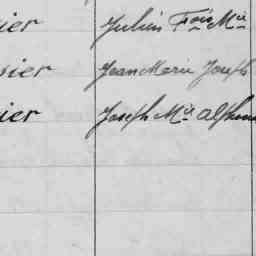 ier Julien Fçois Mie
sier Jean Marie Joseph
ier Joseph Mie Alphon